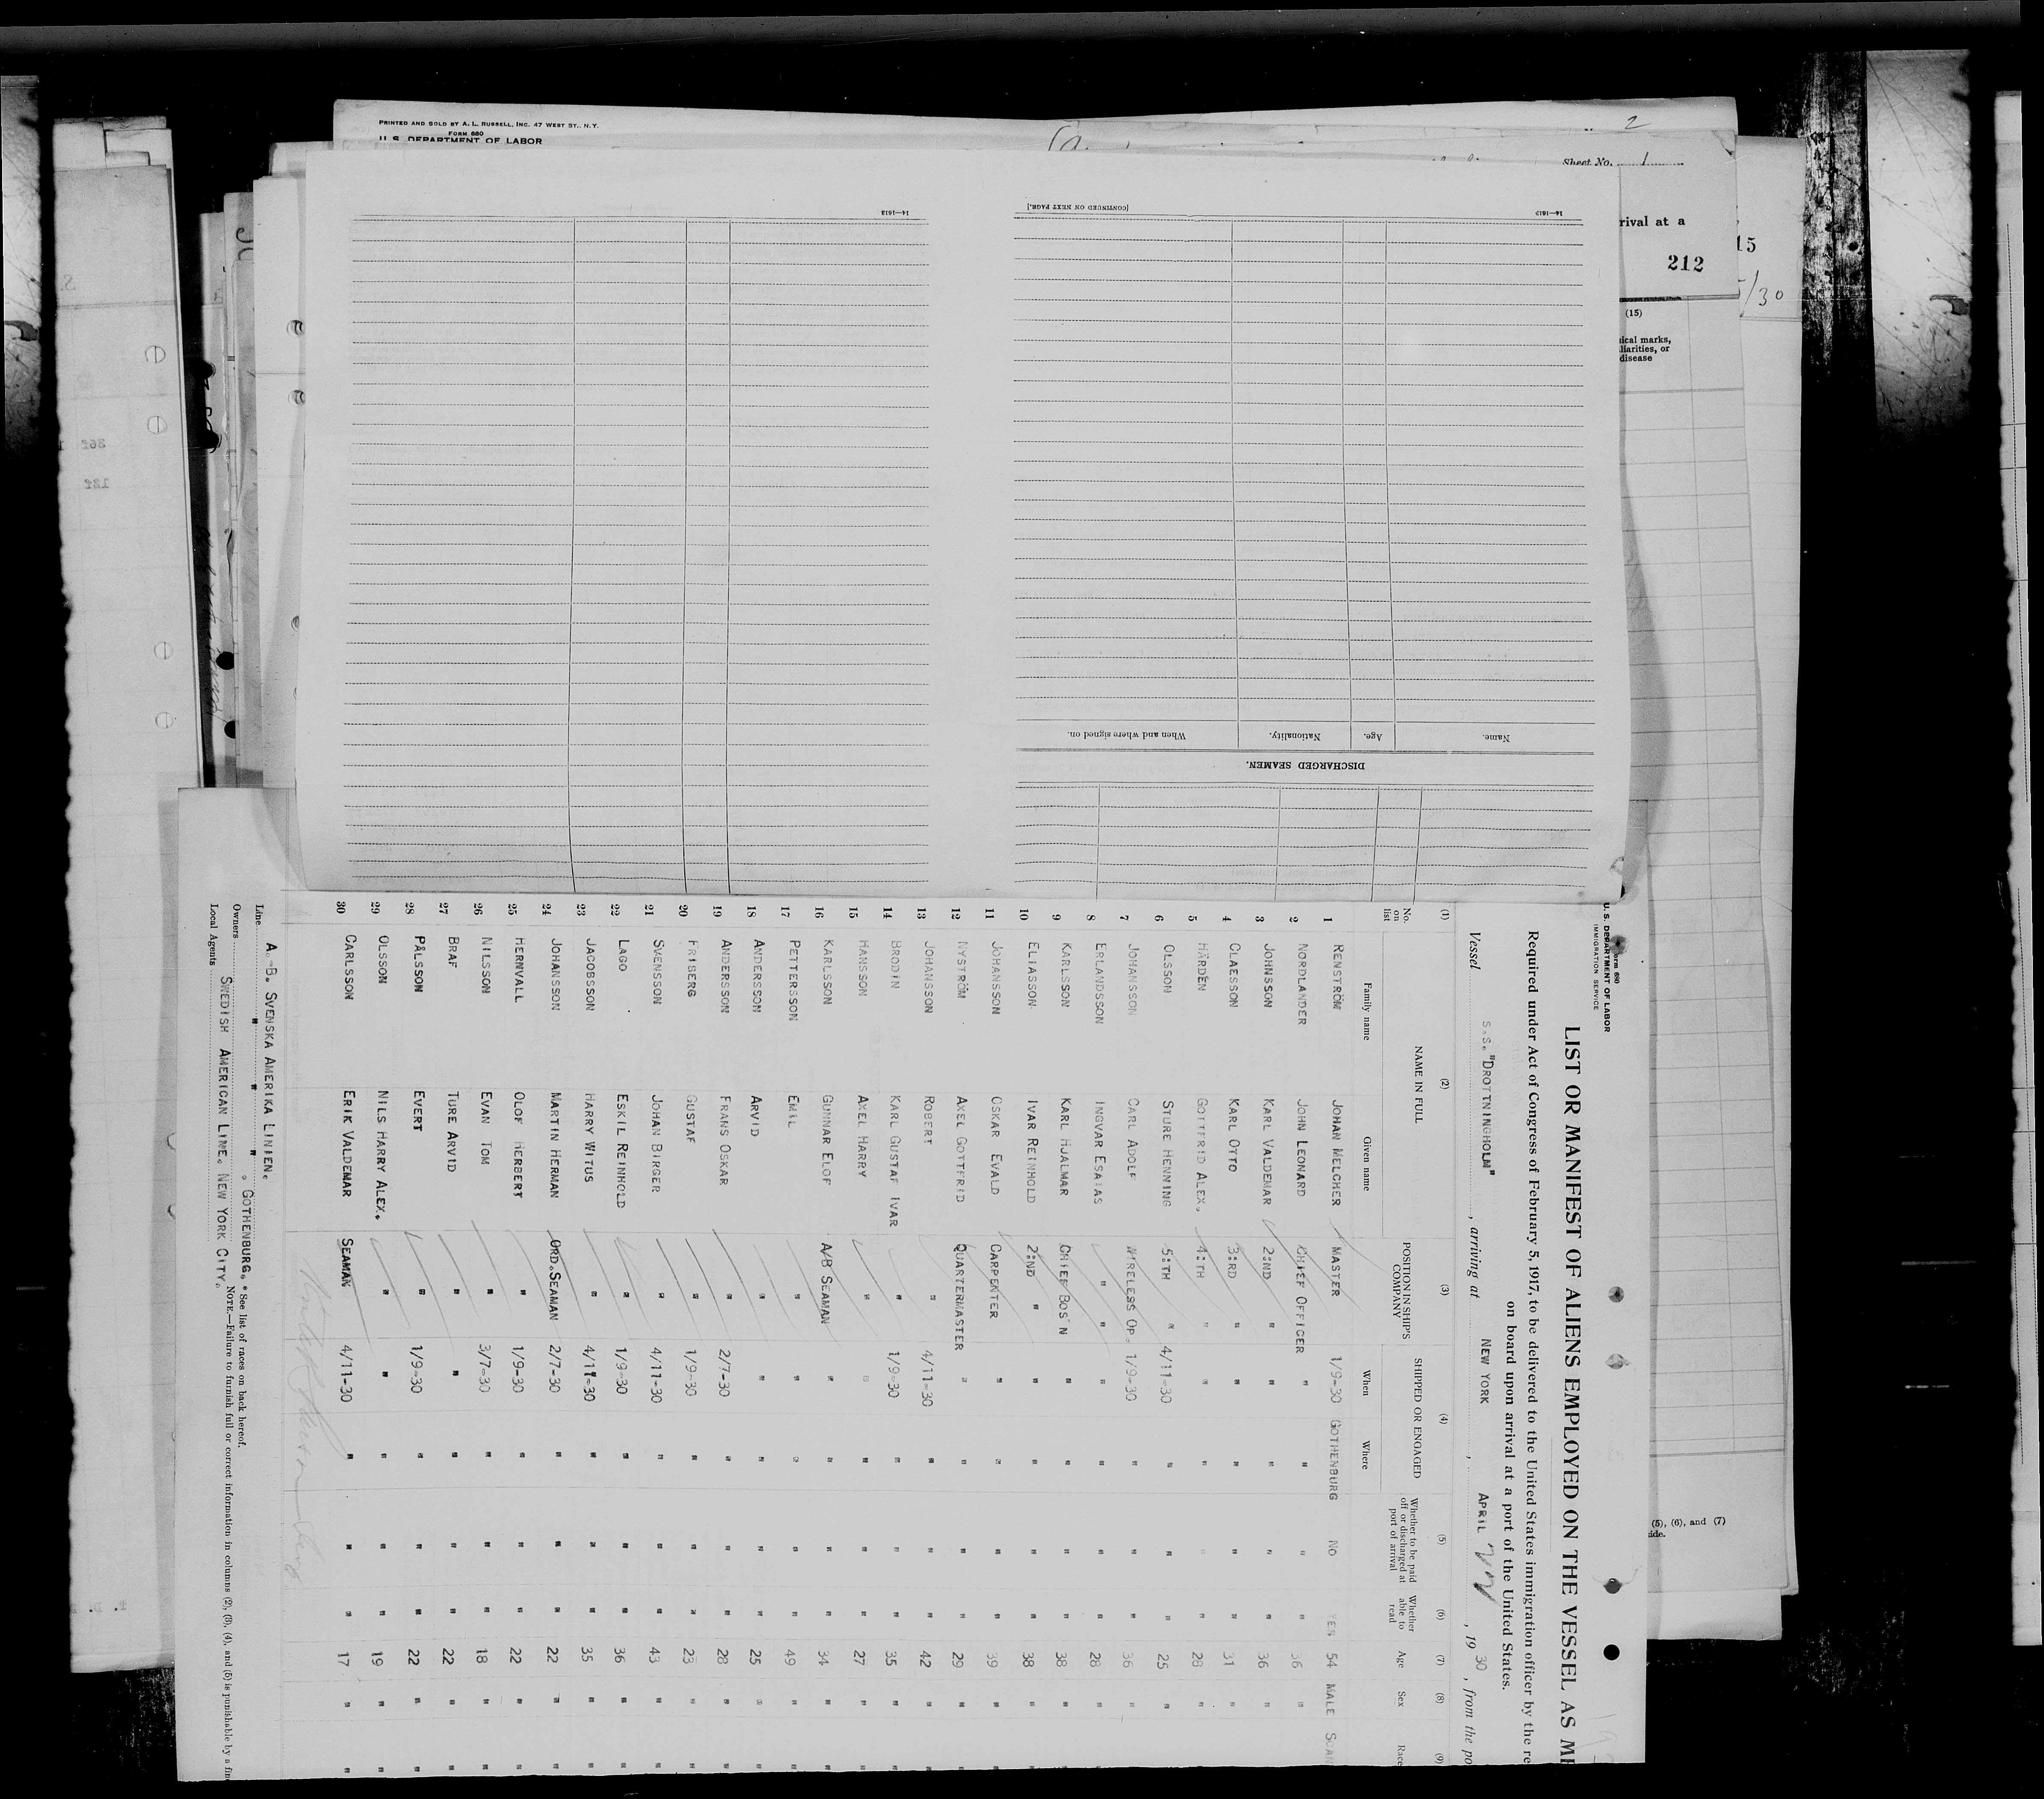 PRINTED AND SOLD BY A. L. RUSSELL, INC. 47 WEST ST., N.Y.
FORM 680
U. S. DEPARTMENT OF LABOR
2
Sheet No. 1
rival at a
15
212
5/30
(15)
ical marks,
liarities, or
disease
14—1613
[CONTINUED ON NEXT PAGE.]
14—1613
When and where signed on.
Nationality.
Age.
Name.
DISCHARGED SEAMEN.
(5), (6), and (7)
ide.
Form 680
U. S. DEPARTMENT OF LABOR
IMMIGRATION SERVICE
LIST OR MANIFEST OF ALIENS EMPLOYED ON THE VESSEL AS ME
Required under Act of Congress of February 5, 1917, to be delivered to the United States immigration officer by the re
on board upon arrival at a port of the United States.
Vessel S.S. "DROTTNINGHOLM", arriving at NEW YORK, APRIL 22, 1930, from the po
(1) (2) (3) (4) (5) (6) (7) (8) (9)
No. on list NAME IN FULL POSITION IN SHIP'S COMPANY SHIPPED OR ENGAGED Whether to be paid off or discharged at port of arrival Whether able to read Age Sex Race
Family name Given name When Where
1 RENSTRÖM JOHAN MELCHER MASTER 1/9-30 GOTHENBURG NO YES 54 MALE SCAN
2 NORDLANDER JOHN LEONARD CHIEF OFFICER " " " " 36 " "
3 JOHNSSON KARL VALDEMAR 2:ND " " " " " 36 " "
4 CLAESSON KARL OTTO 3:RD " " " " " 31 " "
5 HÄRDÉN GOTTFRID ALEX. 4:TH " " " " " 28 " "
6 OLSSON STURE HENNING 5:TH " 4/11-30 " " " 25 " "
7 JOHANSSON CARL ADOLF WIRELESS OP. 1/9-30 " " " 36 " "
8 ERLANDSSON INGVAR ESAIAS " " " " " " 28 " "
9 KARLSSON KARL HJALMAR CHIEF BOS'N " " " " 38 " "
10 ELIASSON IVAR REINHOLD 2:ND " " " " " 38 " "
11 JOHANSSON OSKAR EVALD CARPENTER " " " " 39 " "
12 NYSTRÖM AXEL GOTTFRID QUARTERMASTER " " " " 29 " "
13 JOHANSSON ROBERT " 4/11-30 " " " 42 " "
14 BRODIN KARL GUSTAF IVAR " 1/9-30 " " " 35 " "
15 HANSSON AXEL HARRY " " " " " 27 " "
16 KARLSSON GUNNAR ELOF A/B SEAMAN " " " " 34 " "
17 PETTERSSON EMIL " " " " " 49 " "
18 ANDERSSON ARVID " " " " " 25 " "
19 ANDERSSON FRANS OSKAR " 2/7-30 " " " 28 " "
20 FRIBERG GUSTAF " 1/9-30 " " " 23 " "
21 SVENSSON JOHAN BIRGER " 4/11-30 " " " 43 " "
22 LAGO ESKIL REINHOLD " 1/9-30 " " " 36 " "
23 JACOBSSON HARRY WITUS " 4/11-30 " " " 35 " "
24 JOHANSSON MARTIN HERMAN ORD.SEAMAN 2/7-30 " " " 22 " "
25 HERNVALL OLOF HERBERT " 1/9-30 " " " 22 " "
26 NILSSON EVAN TOM " 3/7-30 " " " 18 " "
27 BRAF TURE ARVID " " " " " 22 " "
28 PÅLSSON EVERT " 1/9-30 " " " 22 " "
29 OLSSON NILS HARRY ALEX. " " " " " 19 " "
30 CARLSSON ERIK VALDEMAR SEAMAN 4/11-30 " " " 17 " "
Line A.-B. SVENSKA AMERIKA LINIEN.
Owners " " " . GOTHENBURG. * See list of races on back hereof.
Local Agents SWEDISH AMERICAN LINE. NEW YORK CITY. NOTE.—Failure to furnish full or correct information in columns (2), (3), (4), and (5) is punishable by a fine